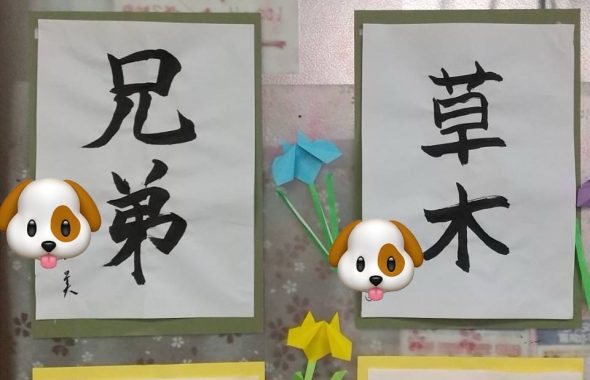 兄弟
美
草木